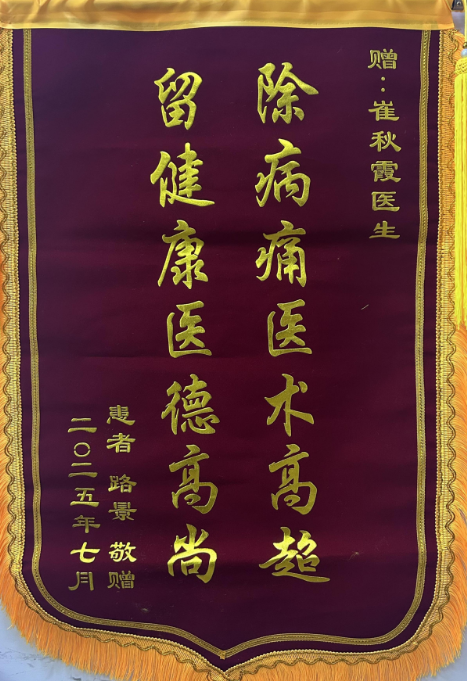 赠：崔秋霞医生
除病痛医术高超
留健康医德高尚
患者 路景 敬赠
二〇二五年七月